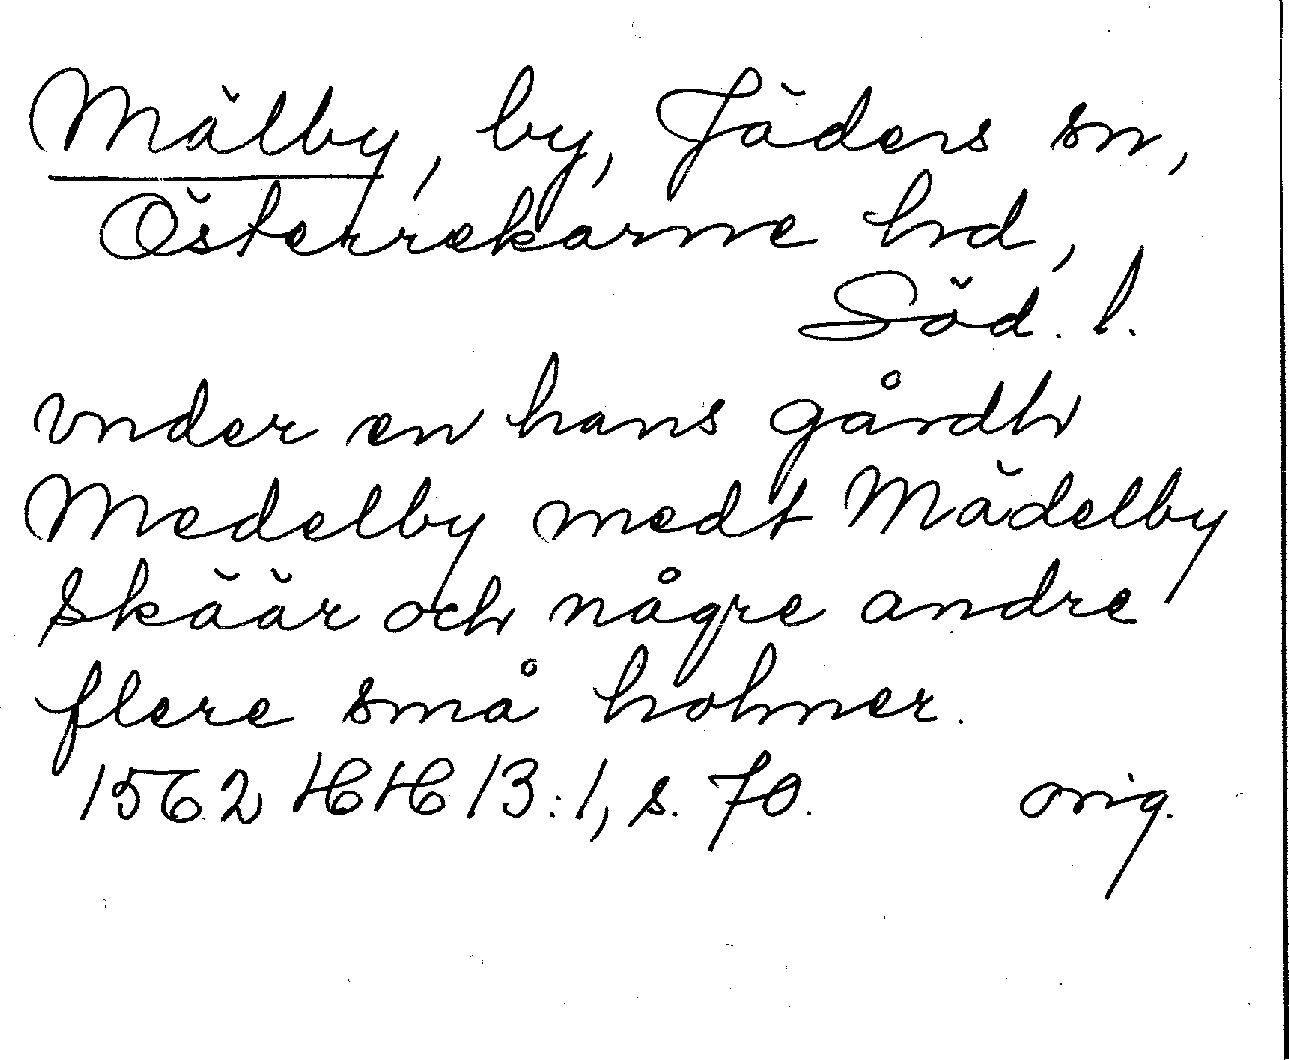 Mälby, by, Jäders sn,
Österrekarne hd,
Söd. l.
vnder en hans gårdh
Medelby medt Mädelby
skäär och någre andre
flere små holmer.
1562 HH 13:1, s. 70. orig.